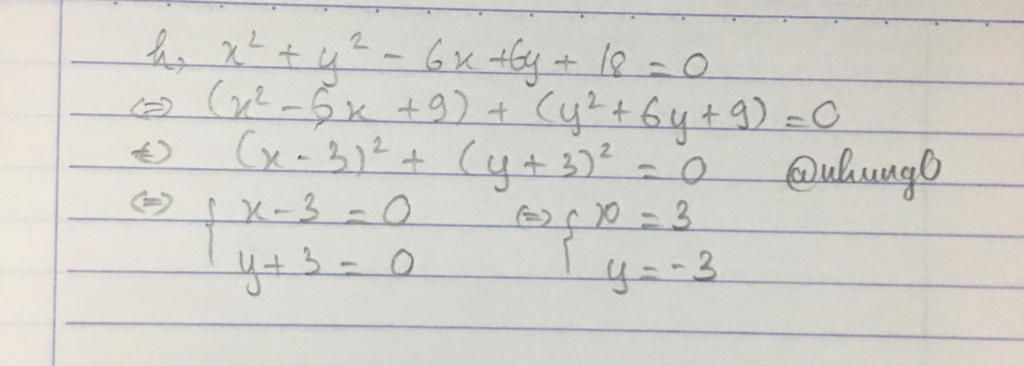 h, x² + y² - 6x + 6y + 18 = 0
⇔ (x² - 6x + 9) + (y² + 6y + 9) = 0
⇔ (x - 3)² + (y + 3)² = 0 @nhung0
⇔ { x - 3 = 0 ⇔ { x = 3
y + 3 = 0 y = -3